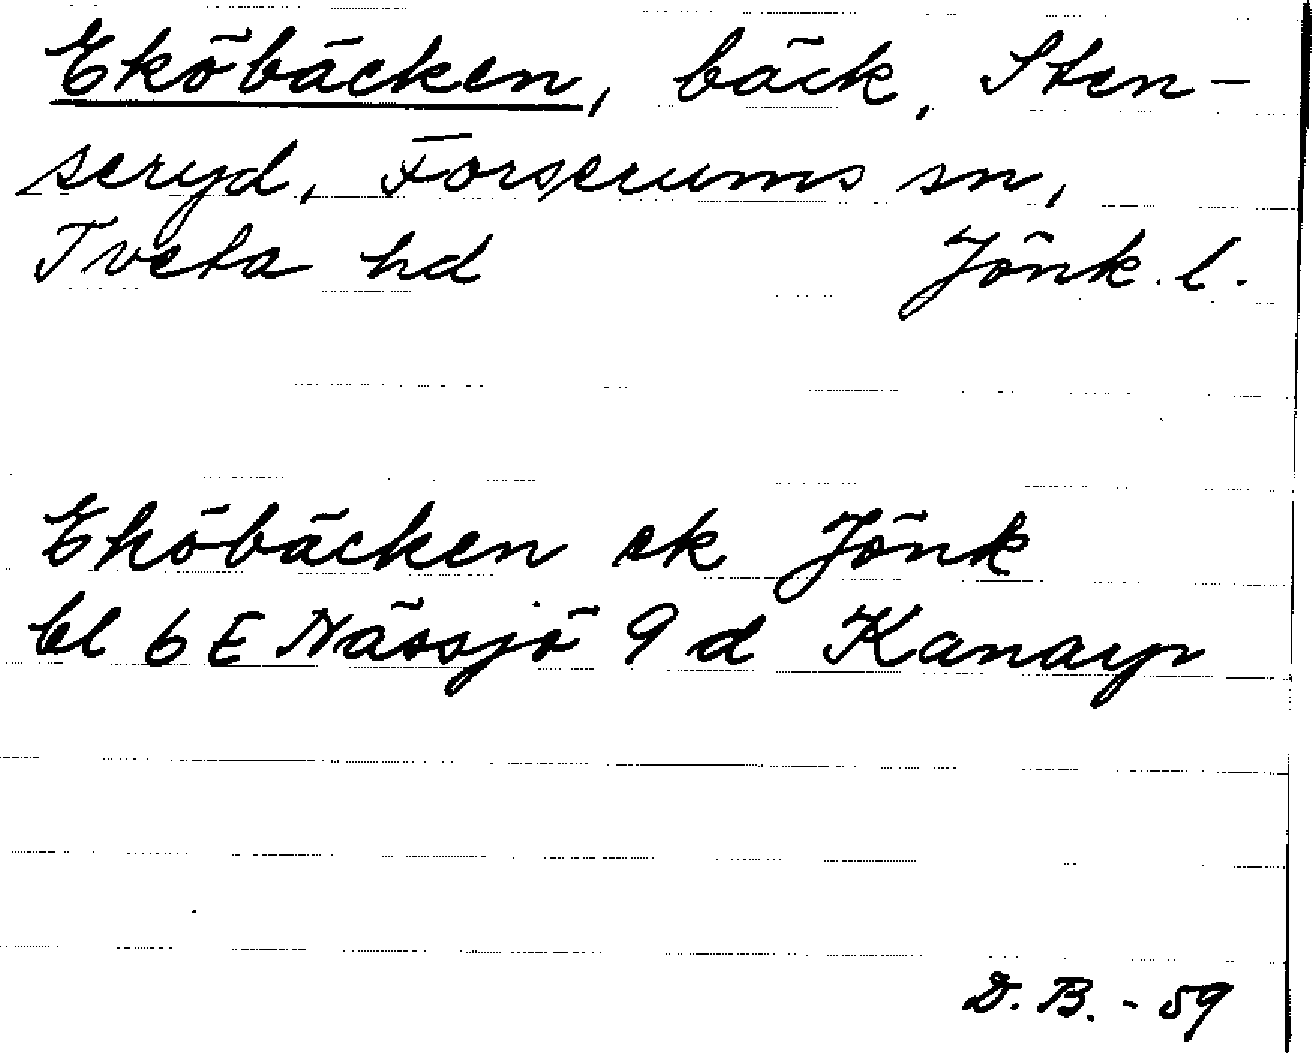 Eköbäcken, bäck, Sten-
seryd, Forserums sn,
Tveta hd Jönk. l.
Eköbäcken ek Jönk
bl 6 E Nässjö 9 d Kanayr
D. B. - 59